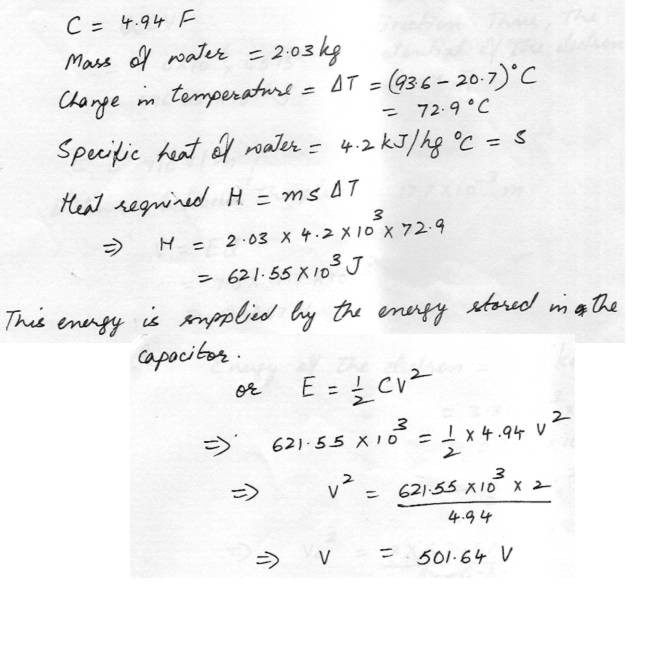 C = 4.94 F
Mass of water = 2.03 kg
Change in temperature = ΔT = (93.6 – 20.7)°C
= 72.9 °C
Specific heat of water = 4.2 kJ/kg °C = s
Heat required H = ms ΔT
⇒ H = 2.03 × 4.2 × 10³ × 72.9
= 621.55 × 10³ J
This energy is supplied by the energy stored in the
capacitor.
or E = 1/2 CV²
⇒ 621.55 × 10³ = 1/2 × 4.94 V²
⇒ V² = 621.55 × 10³ × 2
4.94
⇒ V = 501.64 V